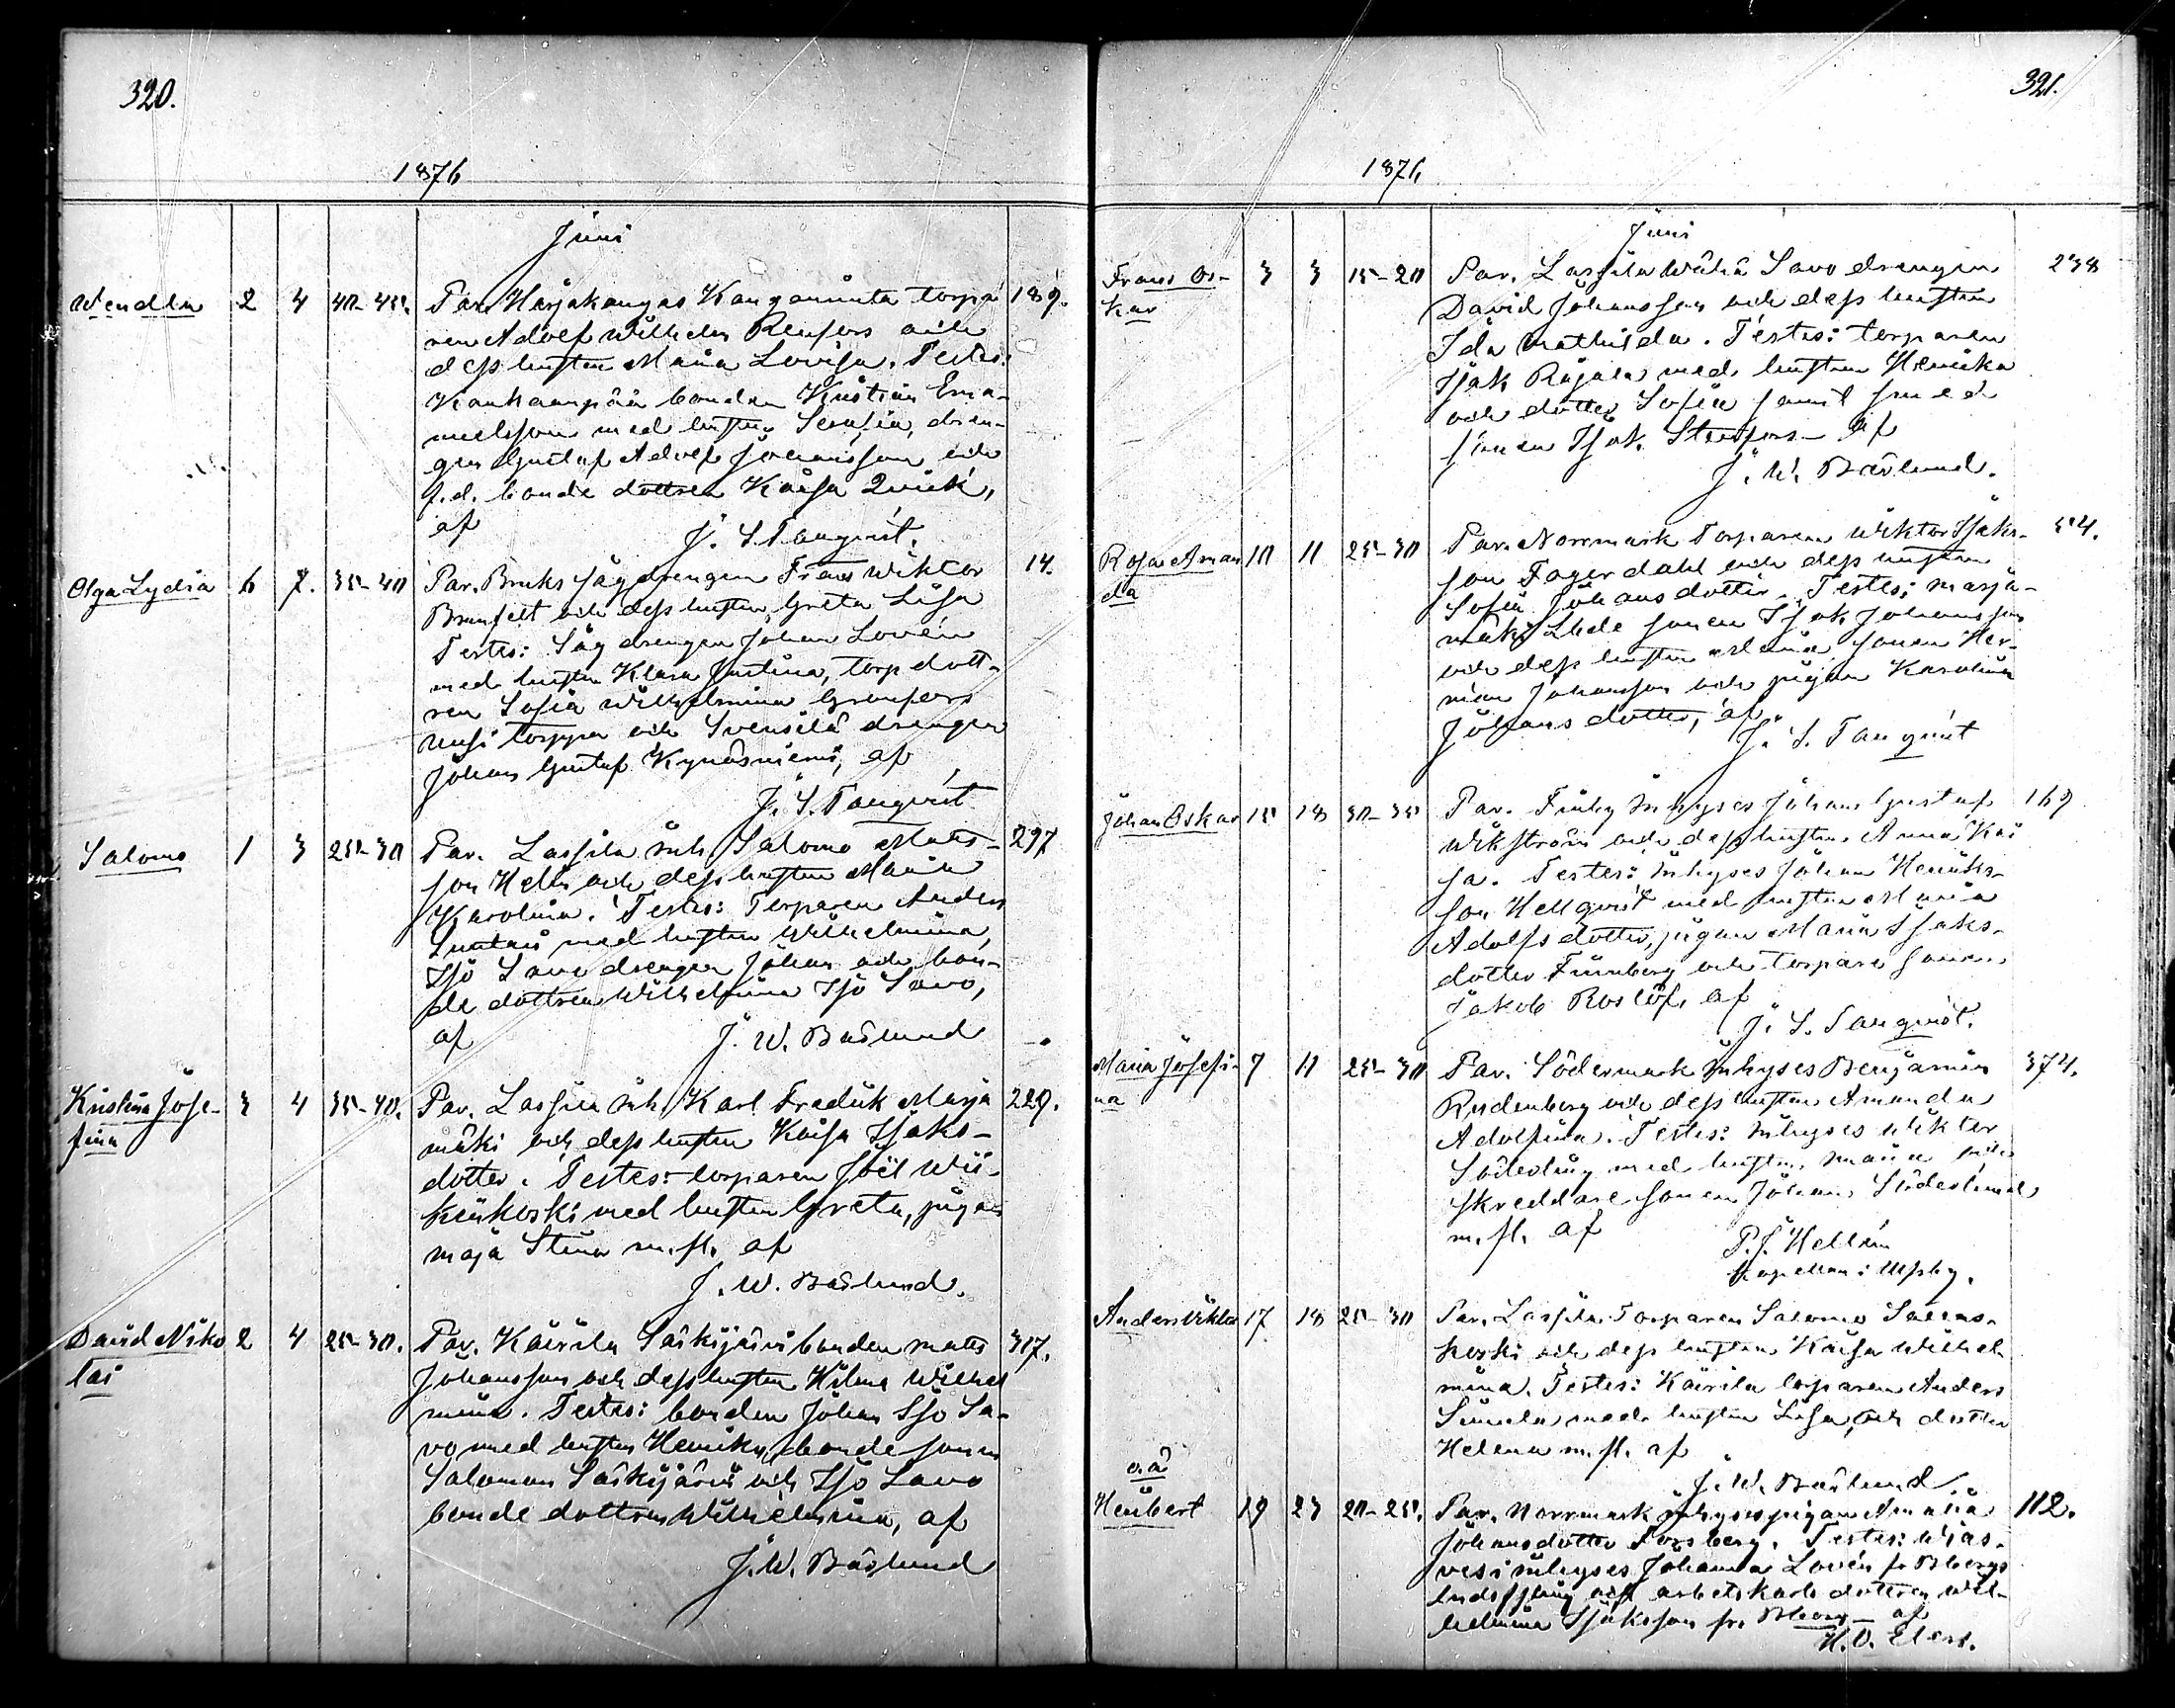 320.
1876
Juni
Wendla 2 4 40-45. Par. Harjakangas Kangarinta torpa 189.
ren Adolf Wilhelm Renfors och
dess hustru Maria Lovisa. Testes:
Kankaanpää bonden Kristian Ema-
nuelsson med hustru Serafia, dren-
gen Gustaf Adolf Johansson och
f.d. bonde dottren Kaisa Qvick,
af J. S. Tanqvist.
Olga Lydia 6 7. 35-40 Par. Bruks sågdrengen Frans Wiktor 14.
Brunfelt och dess hustru Greta Lisa
Testes: Såg drengen Johan Lovén
med hustru Klara Justina, torp dott-
ren Sofia Wilhelmina Grönfors
Uusi torppa och Svensilä drengen
Johan Gustaf Kynäsniemi, af
J. S. Tanqvist
Salomo 1 3 25-30 Par. Lassila inh. Salomo Matts- 297
son Helin och dess hustru Maria
Karolina. Testes: Torparen Anders
Suntais med hustru Wilhelmina,
Iso Savo drengen Johan och bon-
de dottren Wilhelmina Iso Savo,
af J. W. Båslund
Kristina Jose- 3 4 35-40. Par. Lassila inh. Karl Fredrik Marja 229.
fina
mäki och dess hustru Kaisa Isaks-
dotter. Testes: torparen Joël Wii-
kinkoski med hustru Greta, pigan
Maja Stina m.fl. af
J. W. Båslund.
David Niko 2 4 25-30. Par. Kairila Säskijärvi bonden Matts 317.
lai
Johansson och dess hustru Hilma Wilhel
mina. Testes: bonden Johan Iso Sa-
vo med hustru Henrika, bonde sonen
Salomon Säskijärvi och Iso Savo
bonde dottren Wilhelmina, af
J. W. Båslund
321.
1876
Juni
Frans Os- 3 3 15-20 Par. Lassila Wähä Savo drengen 238
kar
David Johansson och dess hustru
Ida Mathilda. Testes: torparen
Isak Rajala med hustru Henrika
och dotter Sofia samt smed
sonen Isak Stenfors - af
J. W. Båslund.
Rosa Aman 10 11 25-30 Par. Norrmark Torparen Wiktor Isaks- 54.
da
son Fagerdahl och dess hustru
Sofia Johansdotter. Testes: Marja-
mäki Lhde sonen Isak Johansson
och dess hustru Maria, sonen Her-
man Johansson och pigan Karolina
Johansdotter, af
J. S. Tanqvist
Johan Oskar 15 18 30-35 Par. Finby Inhyses Johan Gustaf 169
Wikström och dess hustru Anna Kai
sa. Testes: Inhyses Johan Henriks-
son Hellqvist med hustru Maria
Adolfsdotter, pigan Maria Isaks-
dotter Finnberg och torpare sonen
Jakob Roslöf, af
J. S. Tanqvist.
Maria Josefi- 7 11 25-30 Par. Södermark Inhyses Benjamin 374.
na
Rudenberg och dess hustru Amanda
Adolfina. Testes: Inhyses Wiktor
Söderling med hustru Maria och
skreddare sonen Johan Söderlund
m.fl. af P. J. Hellén
kapellan i Ulfsby.
Anders Viktor 17 18 25-30 Par. Lassila Torparen Salomo Sallas-
koski och dess hustru Kaisa Wilhel
mina. Testes: Kairila torparen Anders
Simula med hustru Lisa, och dotter
Helena m.fl. af
J. W. Båslund.
o.ä
Heribert 19 23 20-25. Par. Norrmark inhysespigan Amalia 112.
Johansdotter Forsberg. Testes: Wias-
vesi inhyses Johanna Lovén fr. Bbergs
Landsförs. och arbetskarls dottren Wil-
helmina Isaksson fr. Bborg - af
H. O. Elers.